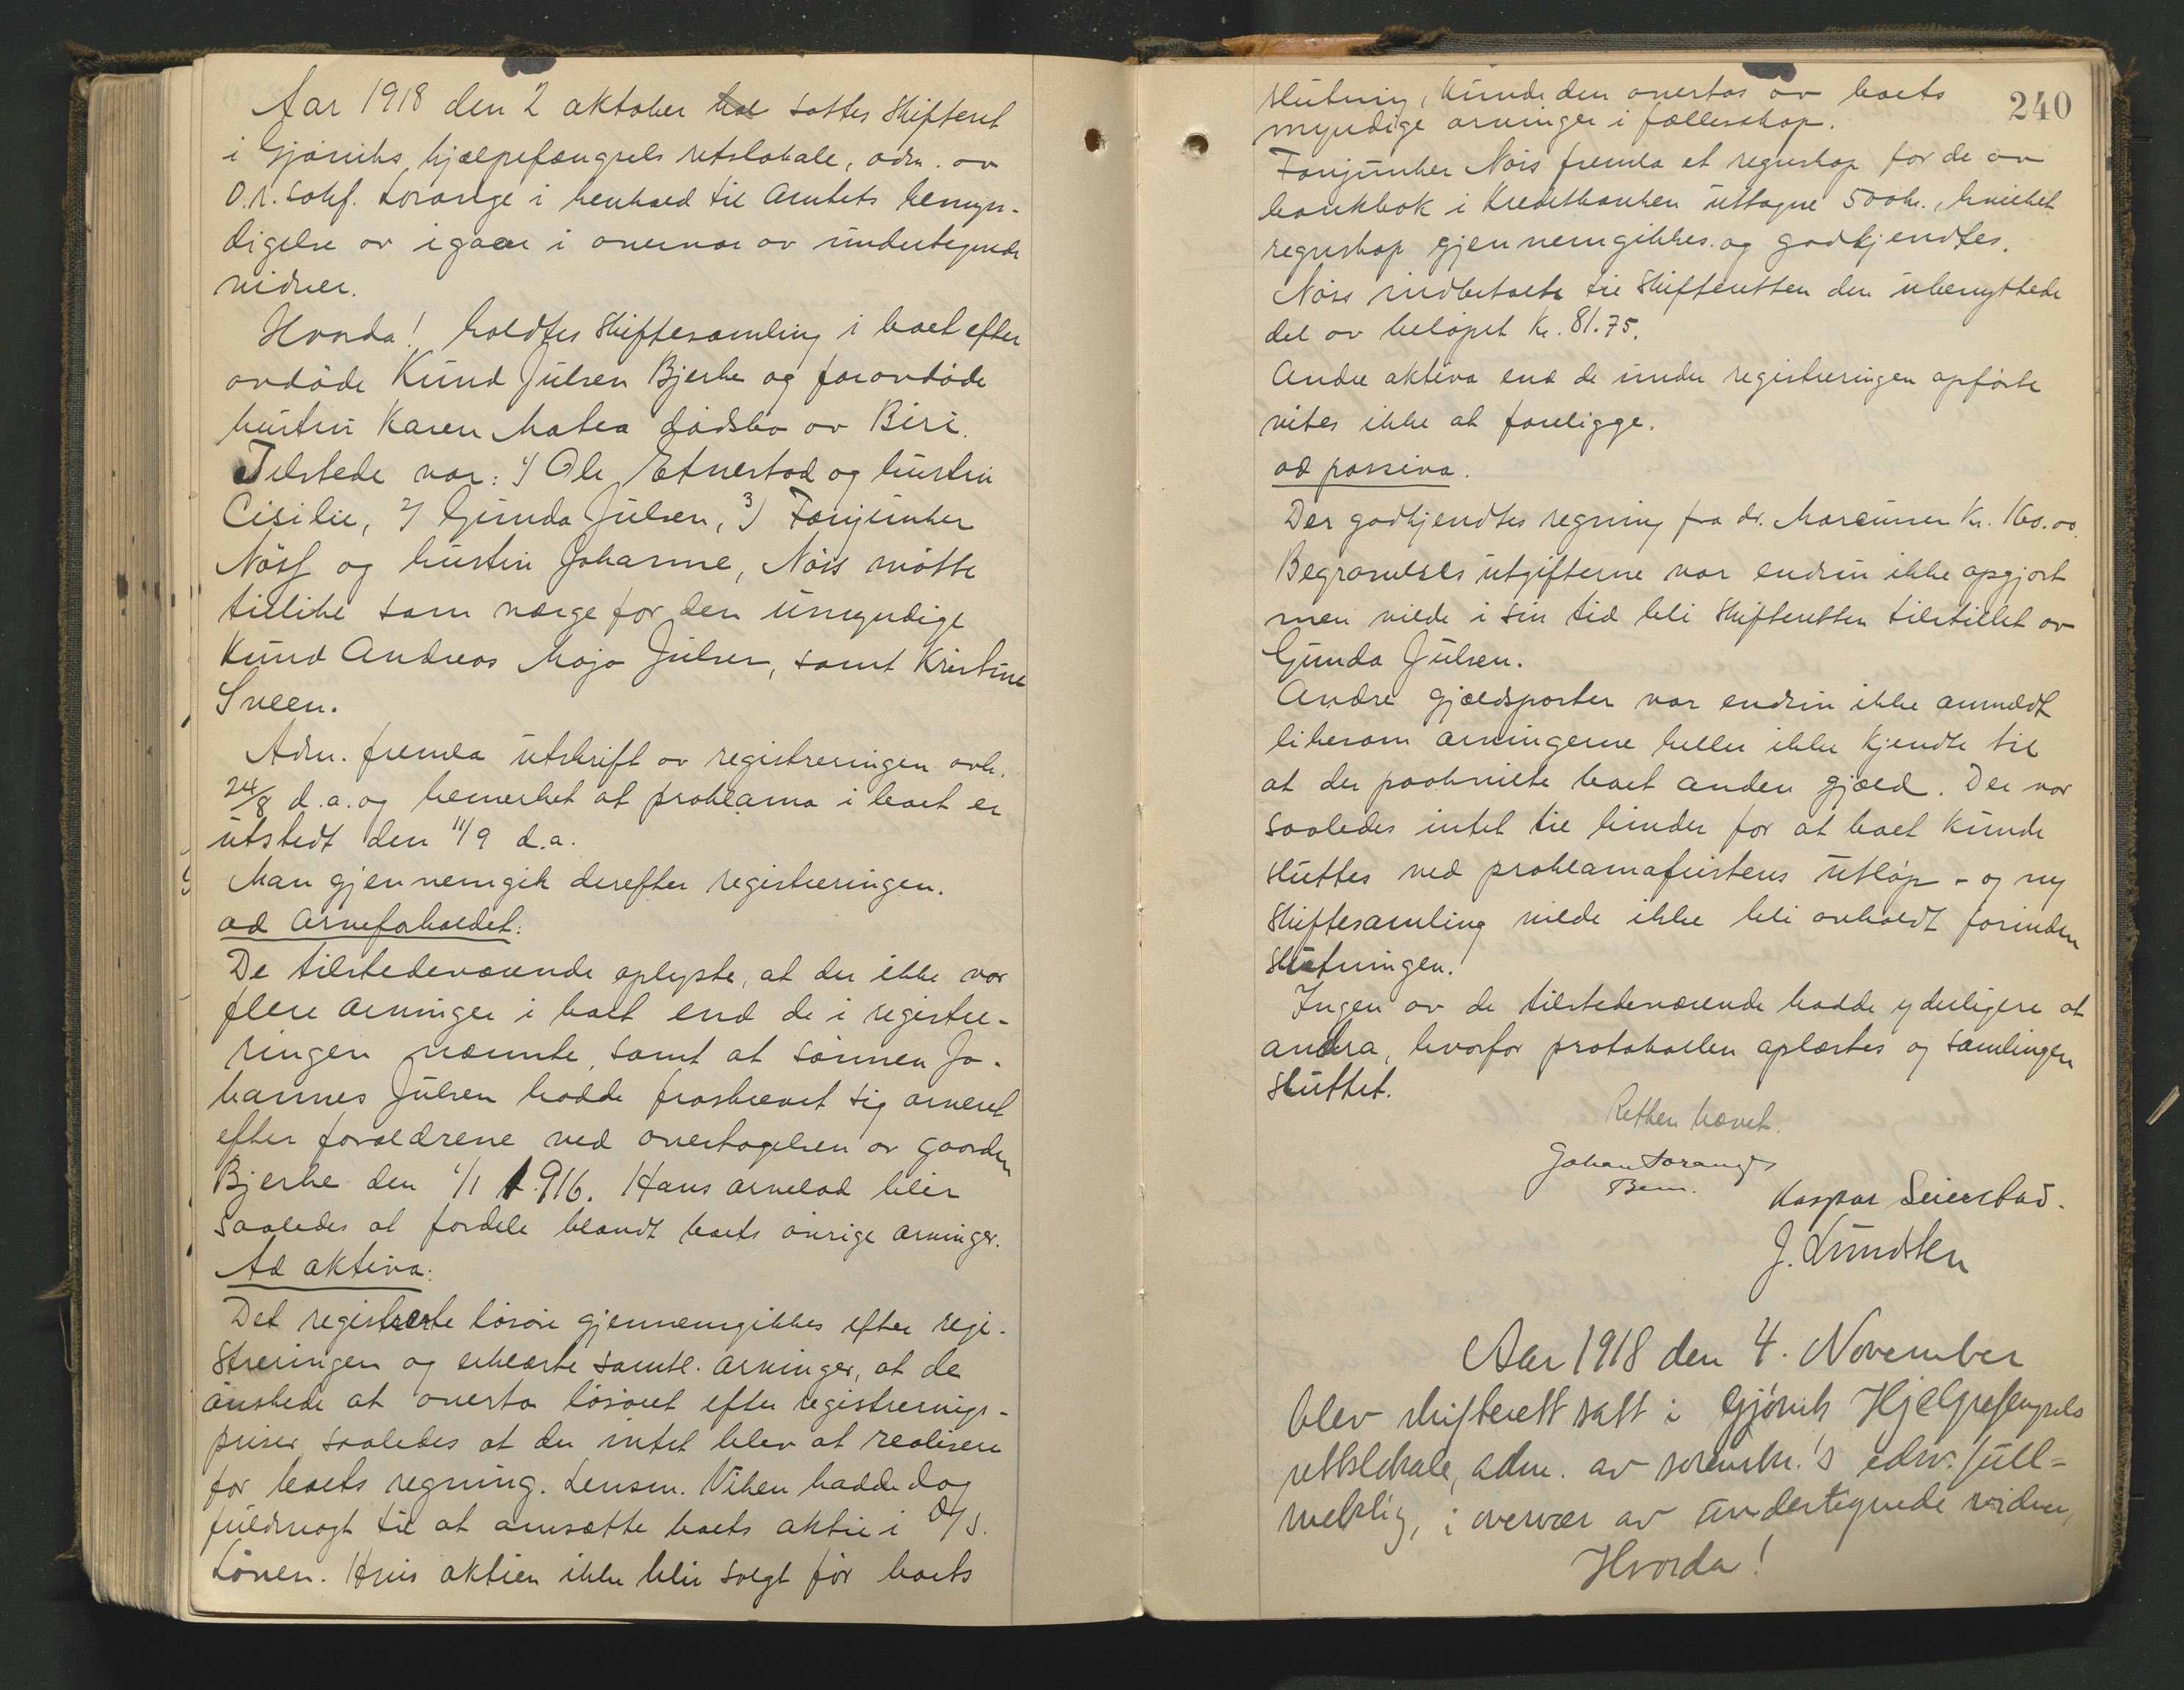 Aar 1918 den 2 oktober hol sattes skifteret
i Gjøviks hjælpefængsels retslokale, adm. av
O.r. sakf. Lorange i henhold til Amtets bemyn-
digelse av igaar i overvær av undertegnede
vidner.
Hvorda! holdtes skiftesamling i boet efter
avdøde Knud Julsen Bjerke og foravdøde
hustru Karen Matea dødsbo av Biri.
Tilstede var: 1) Ole Etnestad og hustru
Cisilie, 2) Gunda Julsen, 3) Fanjunker
Nøss og hustru Johanne, Nøss møtte
tillike som værge for den umyndige
Knud Andreas Mojo Julsen, samt Kristine
Sveen.
Adm. fremla utskrift av registreringen avh.
24/8 d.a. og bemerket at proklama i boet er
utstedt den 11/9 d.a.
Man gjennemgik derefter registreringen.
ad arveforholdet:
De tilstedeværende oplyste, at der ikke var
flere arvinger i boet end de i registre-
ringen nævnte, samt at sønnen Jo-
hannes Julsen hadde fraskrevet sig arveret
efter forældrene ved overtagelsen av gaarden
Bjerke den 1/1 1916. Hans arvelod blir
saaledes at fordele blandt boets øvrige arvinger.
Ad aktiva:
Det registrerte løsøre gjennemgikkes efter regi-
streringen og erklærte samtl. arvinger, at de
ønskede at overta løsøret efter registrerings-
priser, saaledes at der intet blev at realisere
for boets regning. Lensm. Viken hadde dog
fuldmagt til at omsætte boets aktie i D/S.
Lønen. Hvis aktien ikke blir solgt før boets
240
slutning, kunde den overtas av boets
myndige arvinger i fællesskap.
Fanjunker Nøss fremla et regnskap for de av
bankbok i Kreditbanken uttagne 500 kr., hvilket
regnskap gjennemgikkes og godkjendtes.
Nøss indbetalte til skifteretten den ubenyttede
del av beløpet kr. 81.75.
Andre aktiva end de under registreringen opførte
vites ikke at foreligge.
ad passiva.
Der godkjendtes regning fra dr. Marcussen kr. 160.00.
Begravelsesutgifterne var endnu ikke opgjort
men vilde i sin tid bli skifteretten tilstillet av
Gunda Julsen.
Andre gjældsposter var endnu ikke anmeldt
likesom arvingerne heller ikke kjendte til
at der paahvilte boet anden gjæld. Der var
saaledes intet til hinder for at boet kunde
sluttes ved proklamafristens utløp - og ny
skiftesamling vilde ikke bli avholdt forinden
slutningen.
Ingen av de tilstedeværende hadde yderligere at
andra, hvorfor protokollen oplæstes og samlingen
sluttet.
Retten hævet.
Johan Lorange
Bem.
Kaspar Seierstad.
J. Lundsten
Aar 1918 den 4. November
blev skifterett satt i Gjøvik Hjelpefengsels
rettslokale, adm. av sorenskr.'s edsv. full-
mektig, i overvær av undertegnede vidner,
Hvorda!